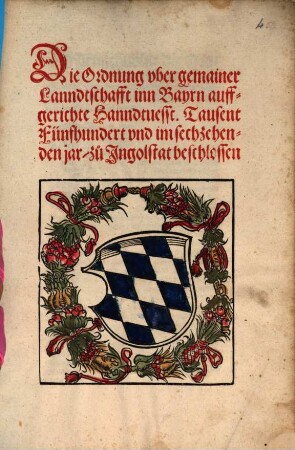 Die Ordnung vber gemainer
Lanndtschafft inn Bayrn auff-
gerichte Hanndtuesst. Tausent
Fünfhundert vnd im sechzehen-
den jar/zů Ingolstat beschlossen